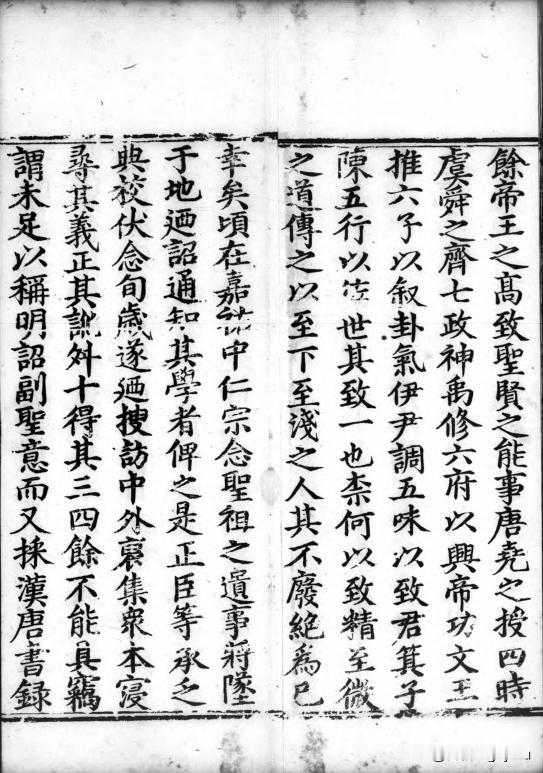 餘帝王之高致聖賢之能事唐堯之授四時
虞舜之齊七政神禹修六府以興帝功文王
推六子以叙卦氣伊尹調五味以致君箕子
陳五行以佐世其致一也柰何以致精至微
之道傳之以至下至淺之人其不廢絕為已
幸矣頃在嘉祐中仁宗念聖祖之遺事將墜
于地廼詔通知其學者俾之是正臣等承乏
典校伏念旬歲遂廼搜訪中外裒集衆本寖
尋其義正其訛舛十得其三四餘不能具竊
謂未足以稱明詔副聖意而又採漢唐書録